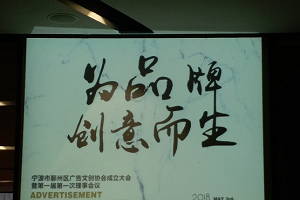 为品牌
创意而生
宁波市鄞州区广告文创协会成立大会
暨第一届第一次理事会议
ADVERTISEMENT
2018 MAY 3rd